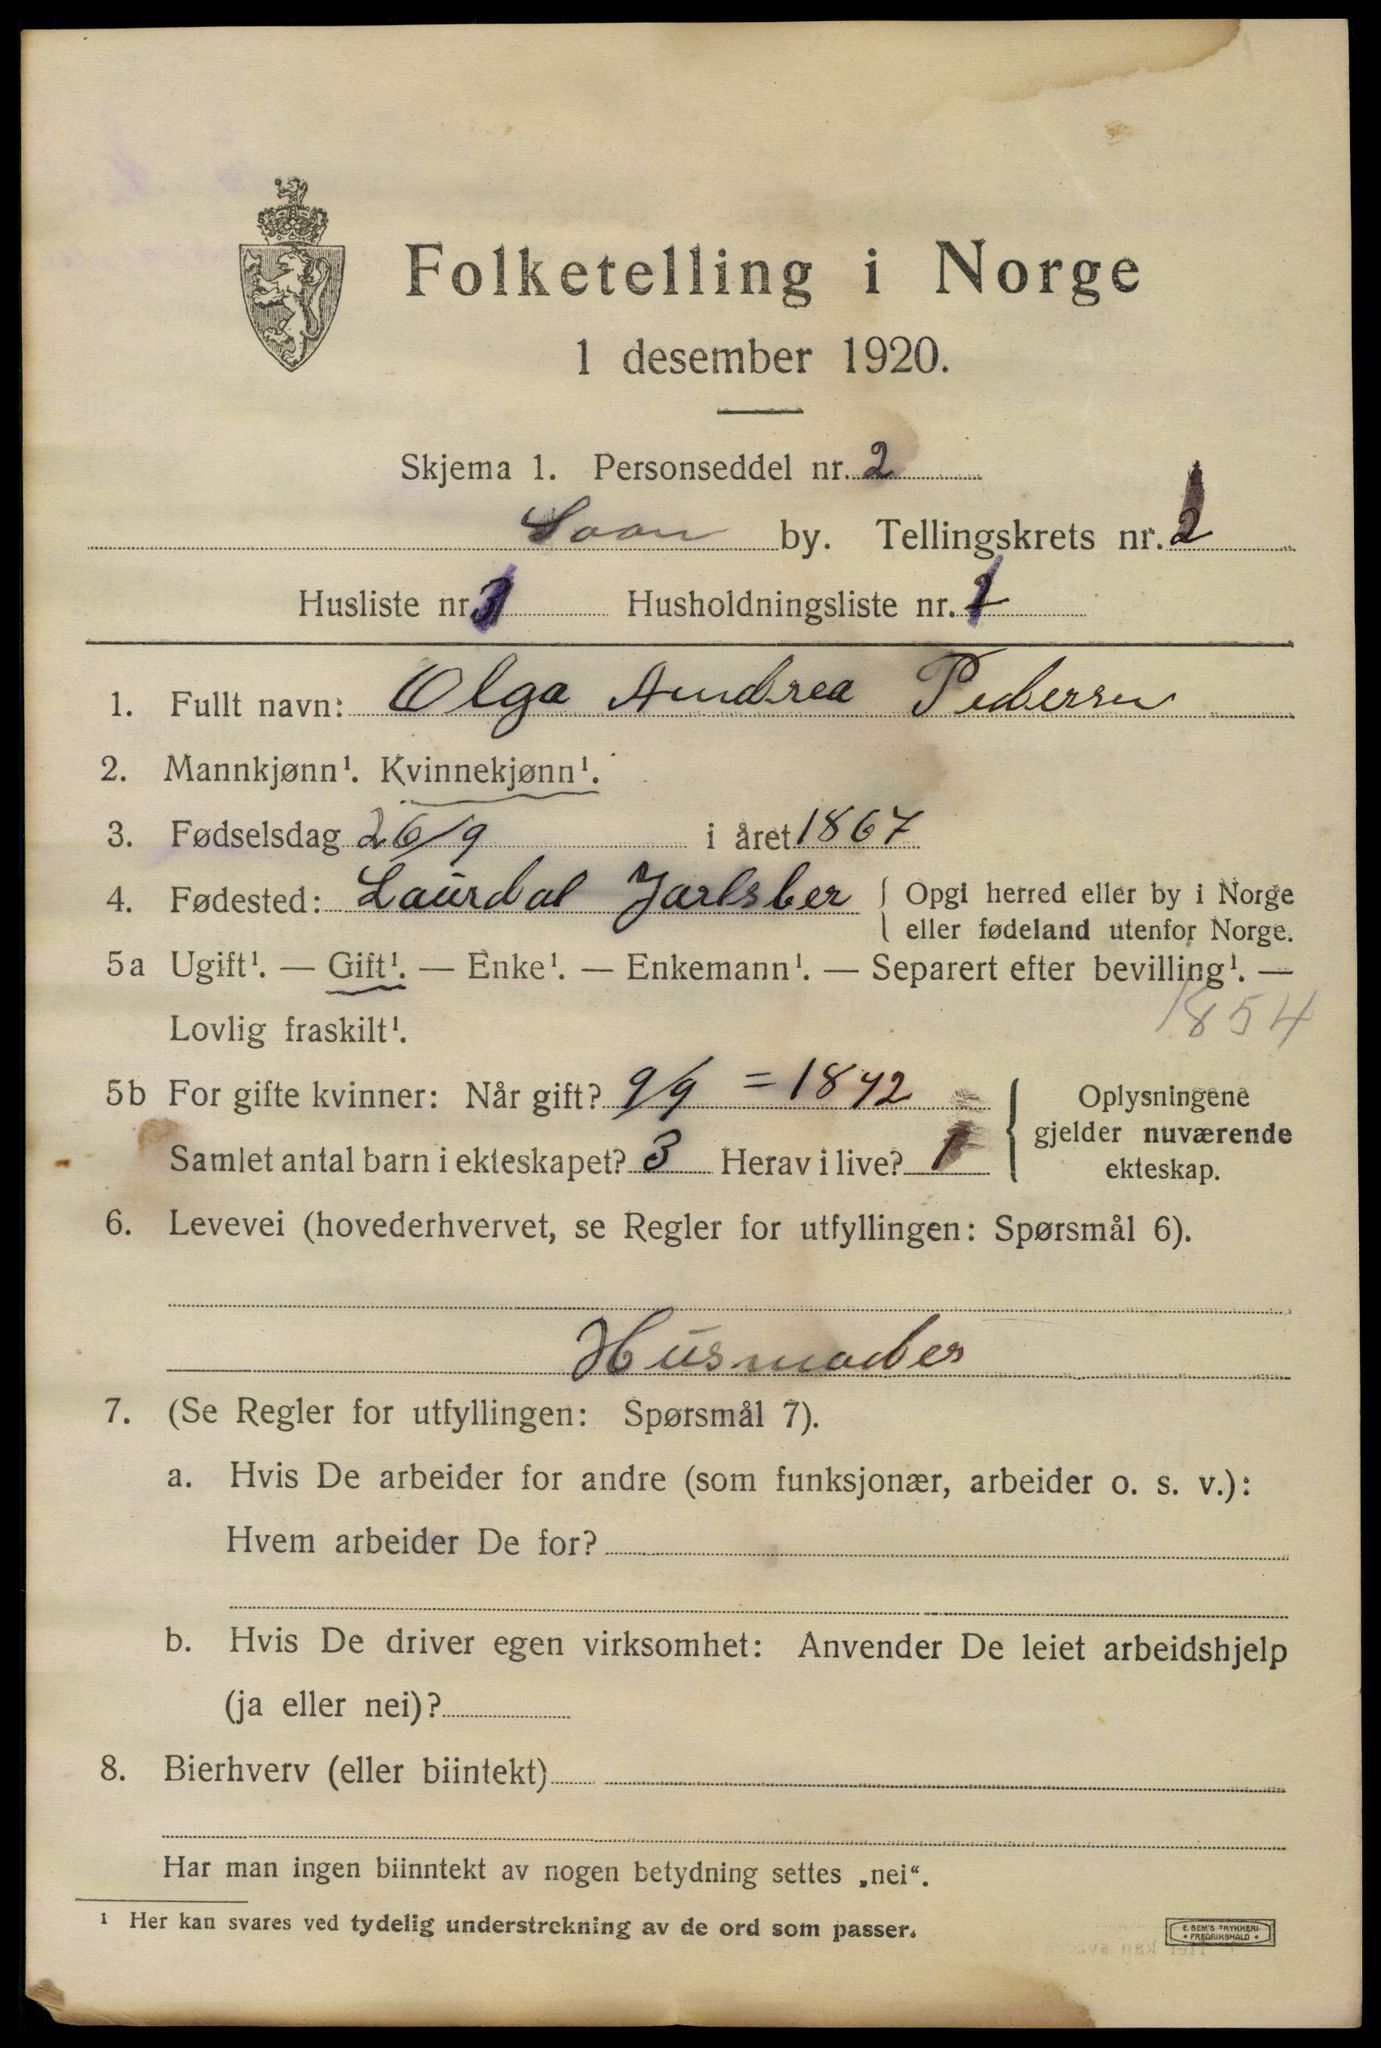 Folketelling i Norge
1 desember 1920.
Skjema 1. Personseddel nr. 2
Soon by. Tellingskrets nr. 2
Husliste nr. 1 Husholdningsliste nr. 1
1. Fullt navn: Olga Amdrea Pedersen
2. Mannkjønn¹. Kvinnekjønn¹.
3. Fødselsdag 26/9 i året 1867
4. Fødested: Laurdal Jarlsber { Opgi herred eller by i Norge
eller fødeland utenfor Norge.
5a Ugift¹. — Gift¹. — Enke¹. — Enkemann¹. — Separert efter bevilling¹. —
1854
Lovlig fraskilt¹.
5b For gifte kvinner: Når gift? 9/9 = 1892
Samlet antal barn i ekteskapet? 3 Herav i live? 1
Oplysningene
gjelder nuværende
ekteskap.
6. Levevei (hovederhvervet, se Regler for utfyllingen: Spørsmål 6).
Husmoder
7. (Se Regler for utfyllingen: Spørsmål 7).
a. Hvis De arbeider for andre (som funksjonær, arbeider o. s. v.):
Hvem arbeider De for?
b. Hvis De driver egen virksomhet: Anvender De leiet arbeidshjelp
(ja eller nei)?
8. Bierhverv (eller biintekt)
Har man ingen biinntekt av nogen betydning settes „nei“.
¹ Her kan svares ved tydelig understrekning av de ord som passer.
E. SEM'S TRYKKERI
• FREDRIKSHALD •